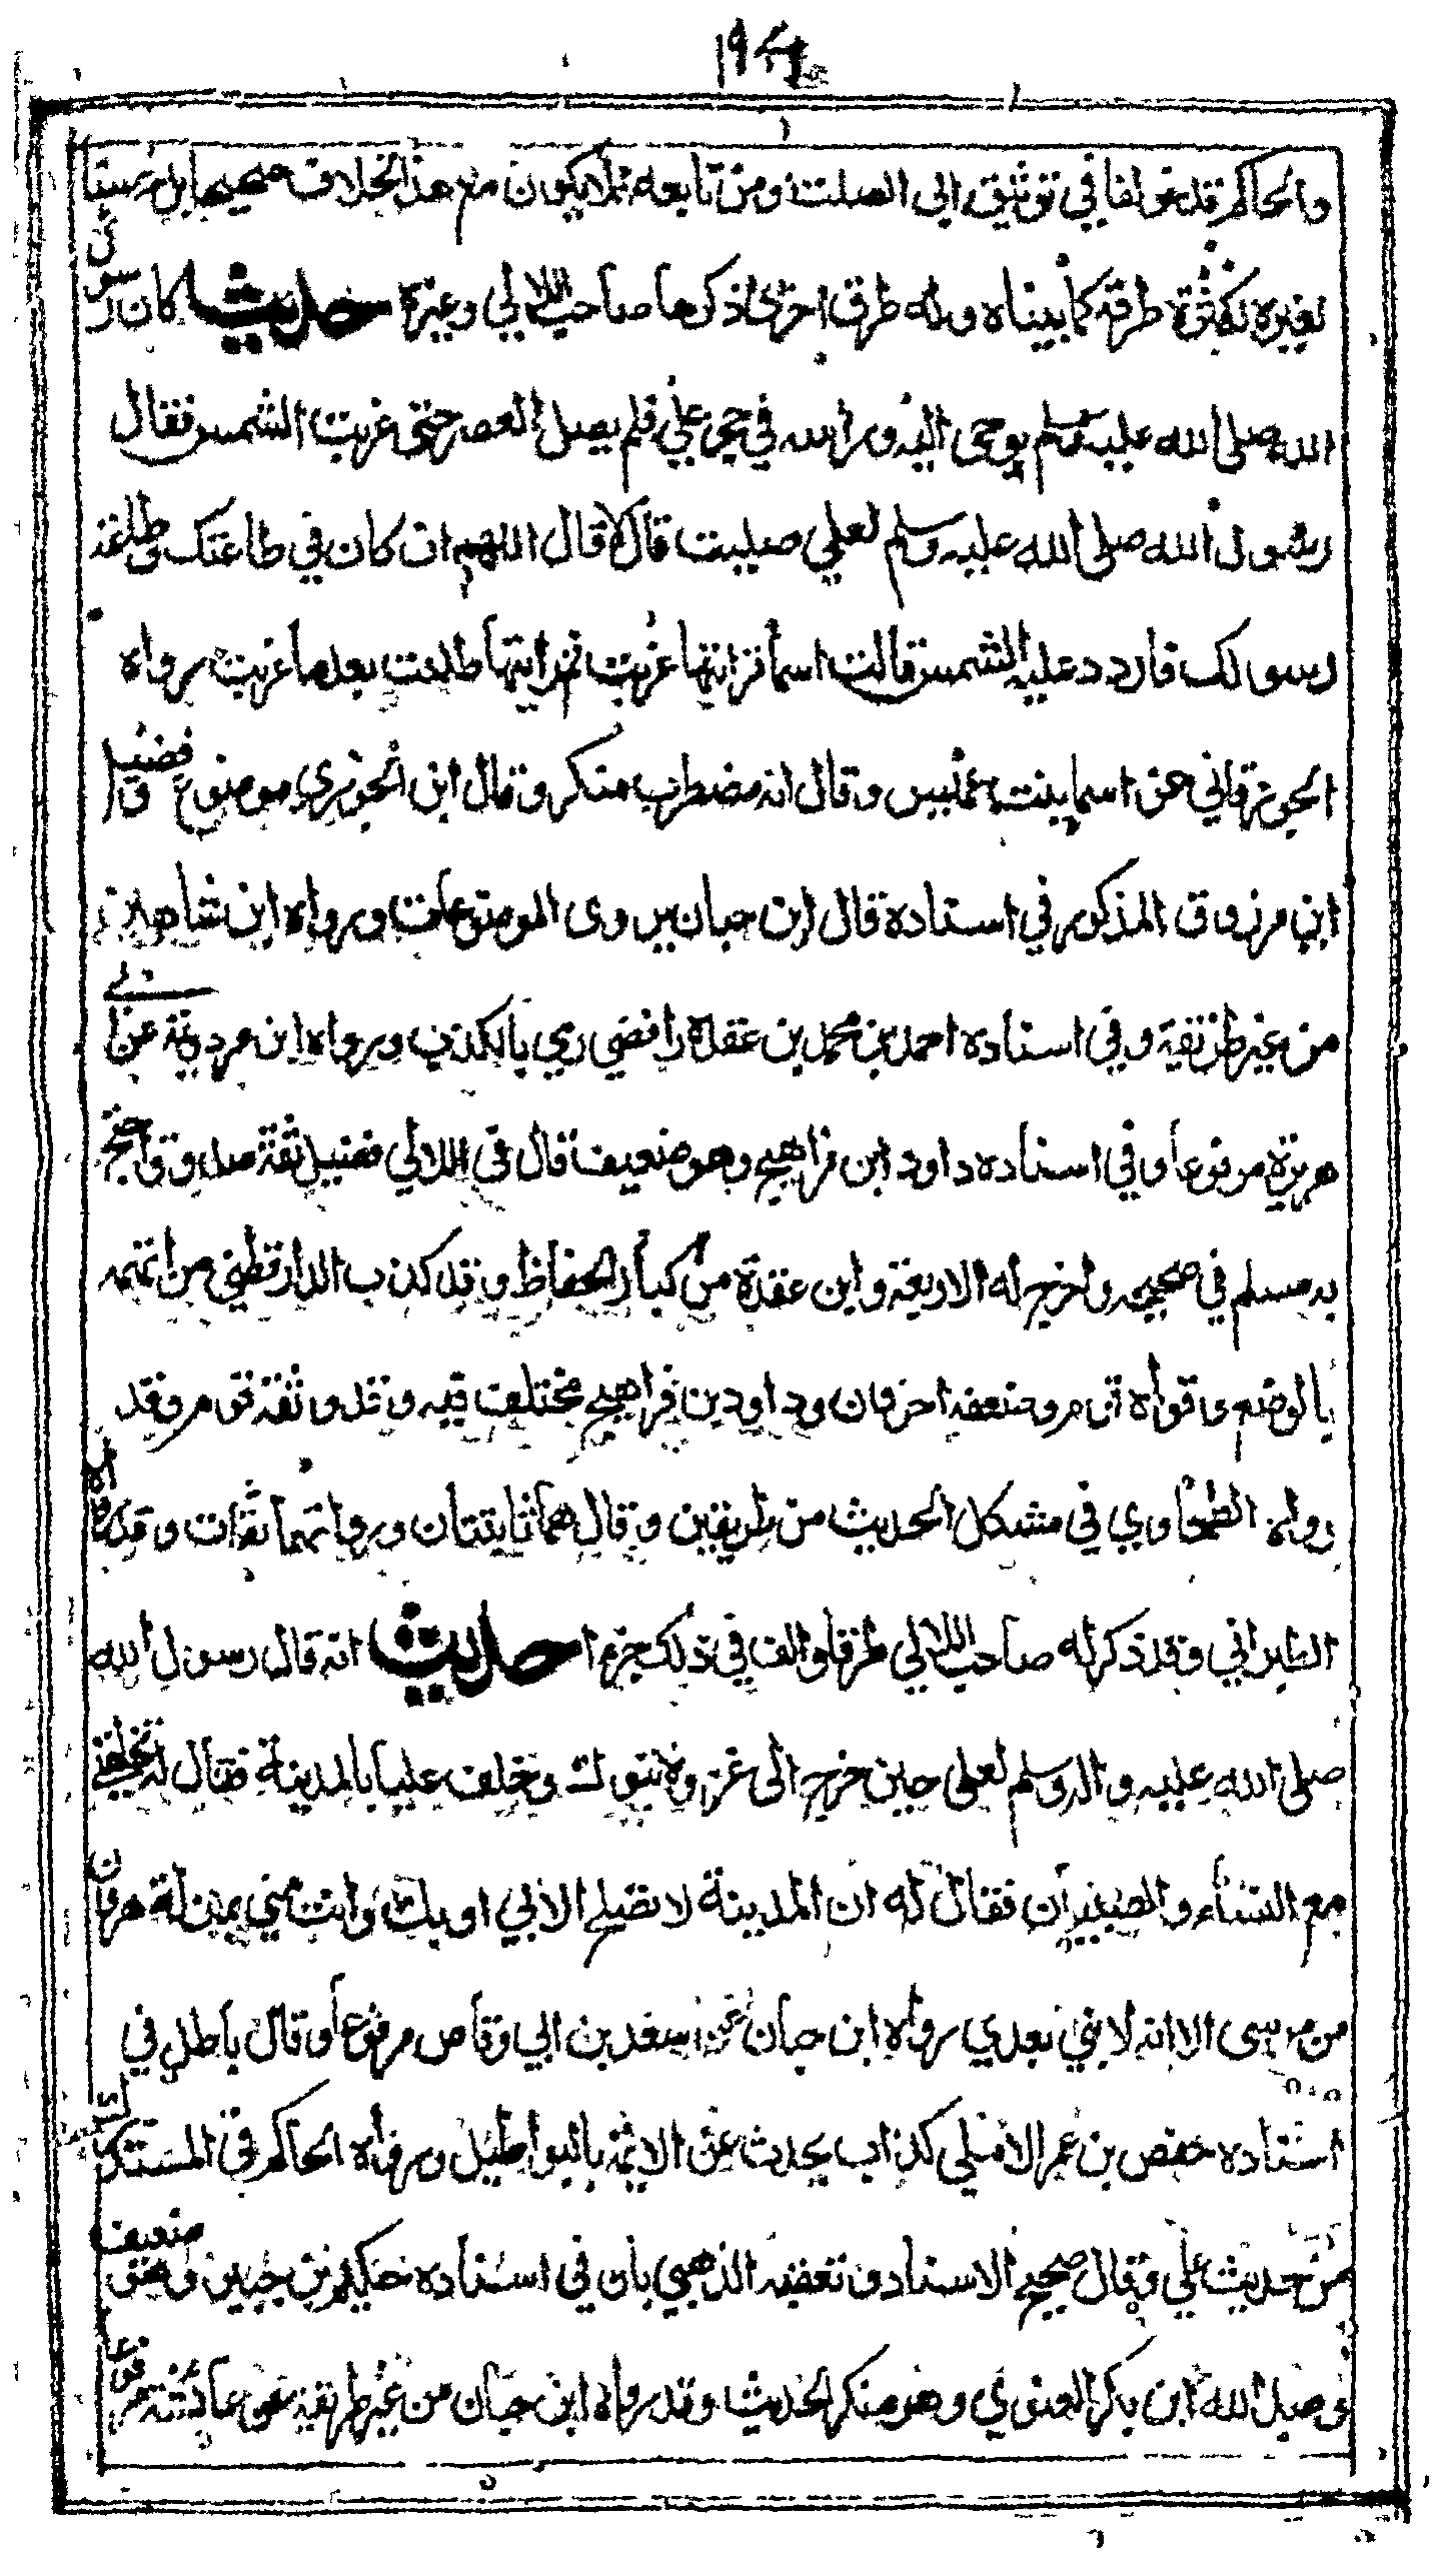 والحاكم قد خولفا في توثيق ابي الصلت ومن تابعه فلا يكون مع هذا الخلاف صحيحا بل حسنا
لغيره لكثرة طرقه كما بيناه وله طرق اخرى ذكرها صاحب اللالي وغيره حديث كان رسول
الله صلى الله عليه وسلم يوحى اليه وراسه في حجر علي فلم يصل العصر حتى غربت الشمس فقال
رسول الله صلى الله عليه وسلم لعلي صليت قال لا قال اللهم ان كان في طاعتك وطاعة
رسولك فاردد عليه الشمس قالت اسما فرايتها غربت ثم رايتها طلعت بعد ما غربت رواه
الجوزقاني عن اسما بنت عميس وقال انه مضطرب منكر وقال ابن الجوزي موضوع وفضيل
ابن مرزوق المذكور في اسناده قال ابن حبان يروى الموضوعات ورواه ابن شاهين
من غير طريقه وفي اسناده احمد بن محمد بن عقدة رافضي رمي بالكذب ورواه ابن مردويه عن ابي
هريرة مرفوعا وفي اسناده داود ابن فراهيج وهو ضعيف قال في اللالي فضيل ثقة صدوق واحتج
به مسلم في صحيحه واخرج له الاربعة وابن عقدة من كبار الحفاظ وقد كذب الدارقطني من اتهمه
بالوضع وقواه قوم وضعفه اخرون وداود بن فراهيج مختلف فيه وقد وثقه قوم وقد
رواه الطحاوي في مشكل الحديث من طريقين وقال هما ثابتتان ورواتهما ثقات وقد رواه
الطبراني وقد ذكر له صاحب اللالي طرقا والف في ذلك جزءا حديث انه قال رسول الله
صلى الله عليه واله وسلم لعلي حين خرج الى غزوة تبوك وخلف عليا بالمدينة فقال له تخلفني
مع النساء والصبيان فقال له ان المدينة لا تصلح الا بي او بك وانت مني بمنزلة هرون
من موسى الا انه لا نبي بعدي رواه ابن حبان عن سعد بن ابي وقاص مرفوعا وقال باطل في
اسناده حفص بن عمر الايلي كذاب يحدث عن الايمة بالبواطيل ورواه الحاكم في المستدرك
من حديث علي وقال صحيح الاسناد وتعقبه الذهبي بان في اسناده حكيم بن جبير وهو ضعيف
وعبد الله ابن بكر الغنوي وهو منكر الحديث وقد رواه ابن حبان من غير طريقه عن عائشة مرفوعا